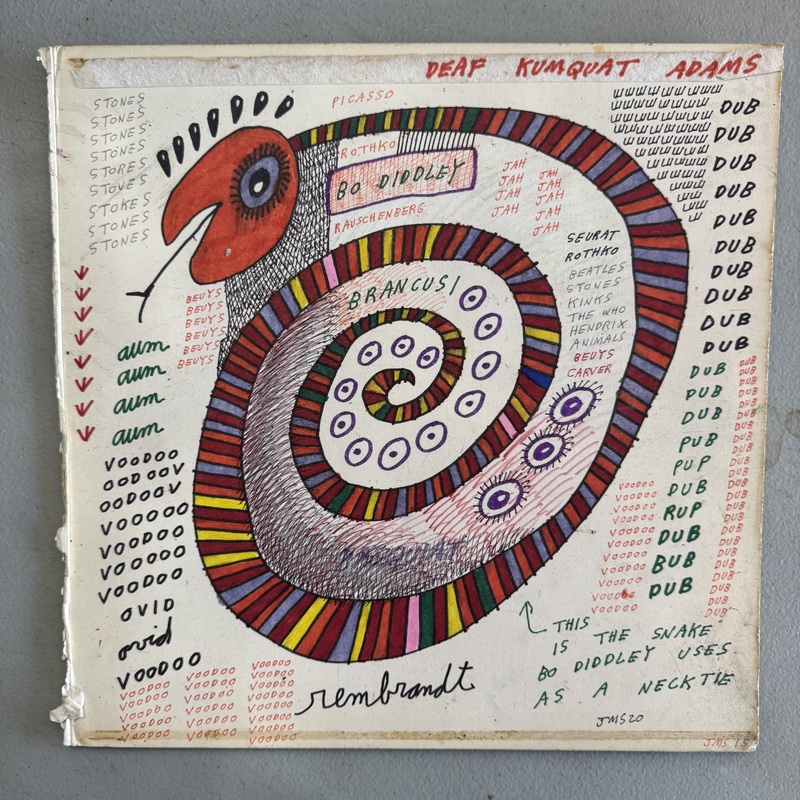 DEAF KUMQUAT ADAMS
STONES
STONES
STONES
STONES
STORES
STOVES
STOKES
STONES
STONES
PICASSO
ROTHKO
BO DIDDLEY
RAUSCHENBERG
JAH
JAH
JAH
JAH
JAH
JAH
JAH
JAH
JAH
DUB
DUB
DUB
DUB
DUB
DUB
DUB
DUB
DUB
DUB
SEURAT
ROTHKO
BEATLES
STONES
KINKS
THE WHO
HENDRIX
ANIMALS
BEUYS
CARVER
BRANCUSI
BEUYS
BEUYS
BEUYS
BEUYS
BEUYS
aum
aum
aum
aum
VOODOO
OODOOV
OODOOV
VOOOOO
VOODOO
VOOOOO
VOODOO
OVID
ovid
VOODOO
DUB
DUB
DUB
PUB
PUP
DUB
RUP
DUB
BUB
DUB
DUB
DUB
DUB
DUB
DUB
DUB
DUB
DUB
DUB
DUB
DUB
DUB
DUB
DUB
DUB
DUB
DUB
DUB
DUB
DUB
VOODOO
VOODOO
VOODOO
VOODOO
VOODOO
VOODOO
VOODOO
VOODOO
VOODOO
VOODOO
VOODOO
VOODOO
KUMQUAT
THIS
IS THE SNAKE
BO DIDDLEY USES
AS A NECKTIE
VOODOO
VOODOO
VOODOO
VOODOO
VOODOO
VOODOO
VOODOO
VOODOO
VOODOO
VOODOO
VOODOO
VOODOO
VOODOO
VOODOO
VOODOO
VOODOO
VOODOO
VOODOO
rembrandt
JMS20
JMS 15